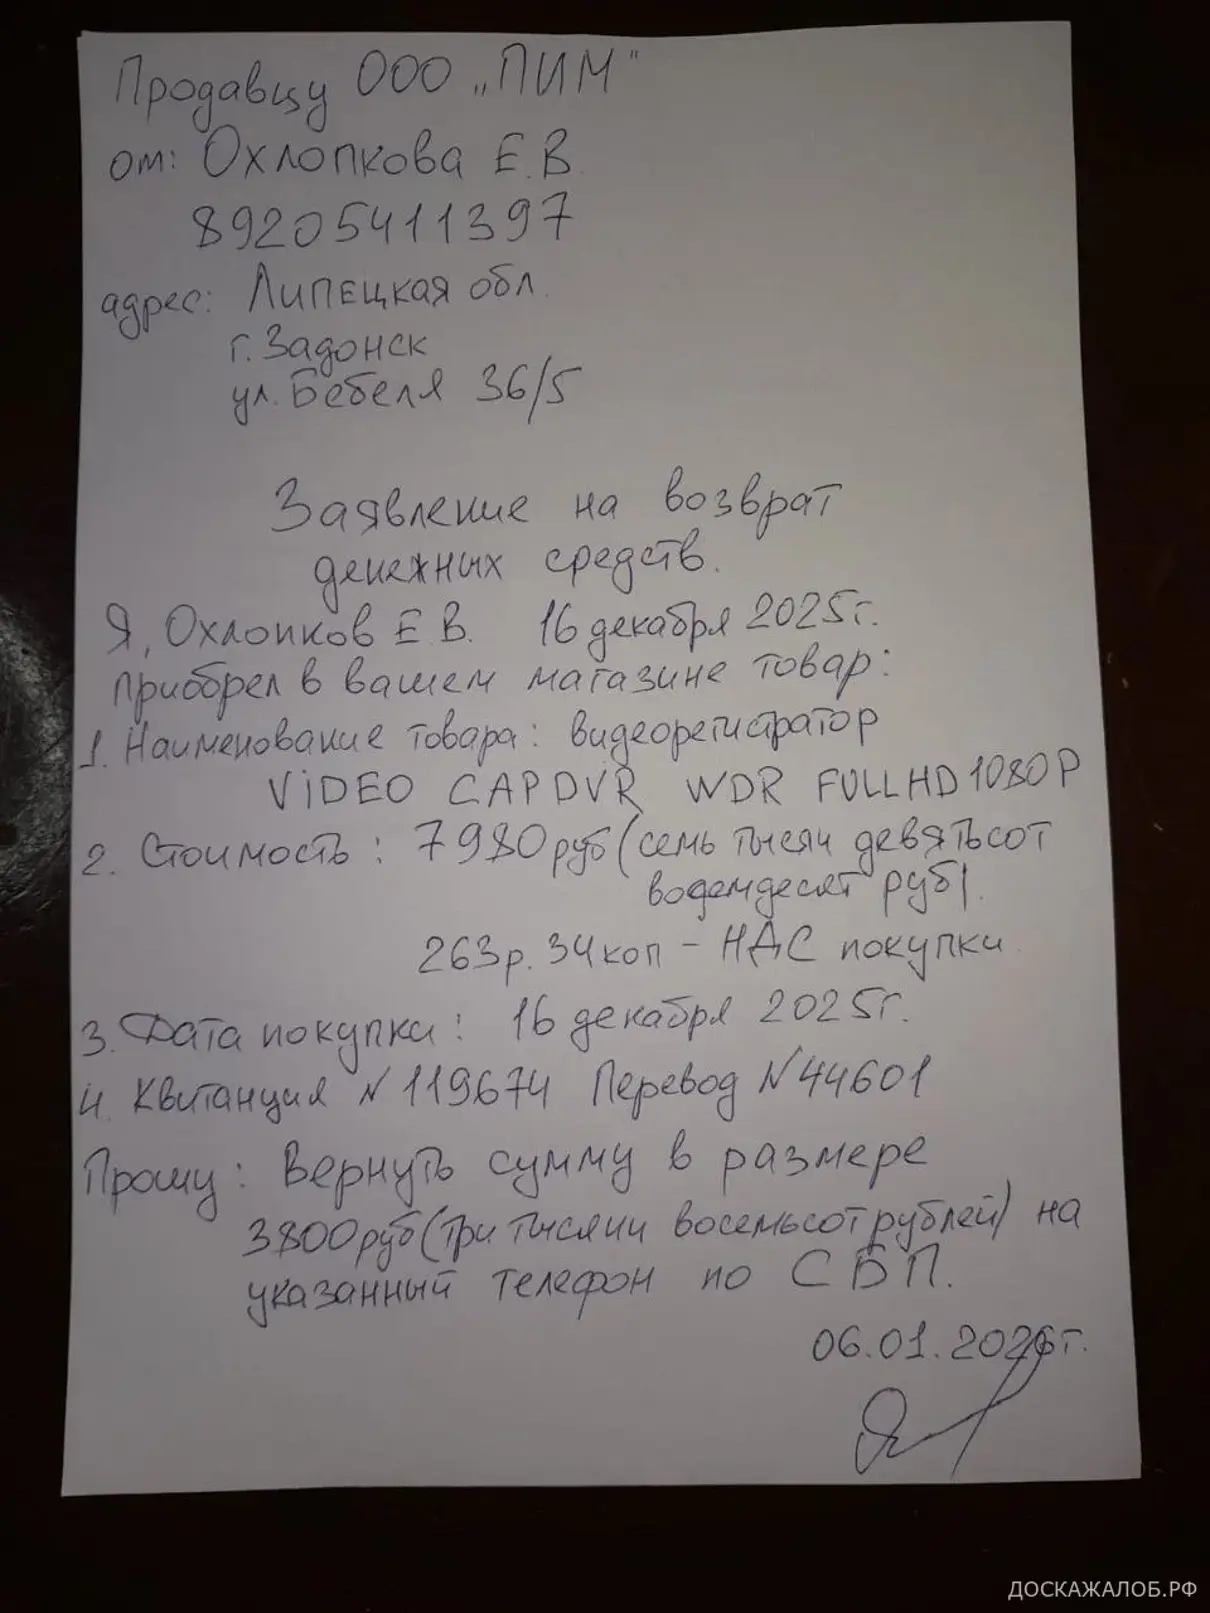 Продавцу ООО „ПИМ"
от: Охлопкова Е.В.
89205411397
адрес: Липецкая обл.
г. Задонск
ул. Бебеля 36/5
Заявление на возврат
денежных средств.
Я, Охлопков Е.В. 16 декабря 2025г.
приобрел в вашем магазине товар:
1. Наименование товара: видеорегистратор
ViDEO CAPDVR WDR FULLHD1080P
2. Стоимость: 7980руб (семь тысяч девятьсот
восемдесят руб).
263р. 34коп - НДС покупки
3. Дата покупки: 16 декабря 2025г.
4. Квитанция N119674 Перевод N44601
Прошу: Вернуть сумму в размере
3800руб (три тысячи восемьсот рублей) на
указанный телефон по СБП.
06.01.2026г.
ДОСКАЖАЛОБ.РФ